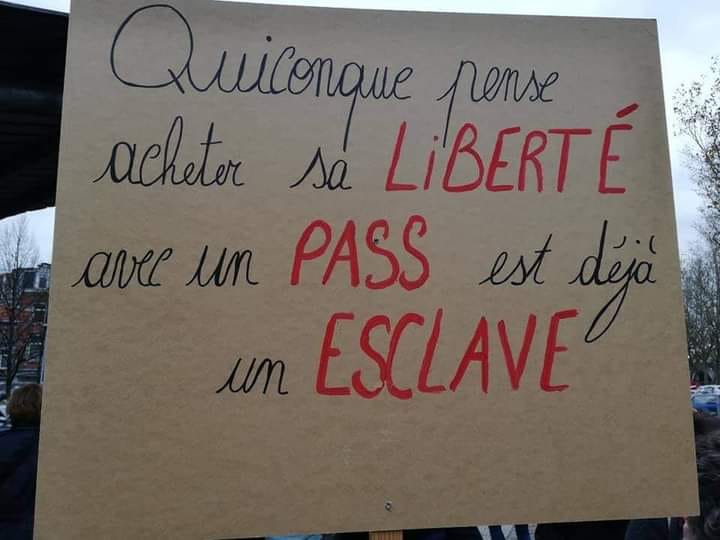 Quiconque pense
acheter sa LiBERTÉ
avec un PASS est déjà
un ESCLAVE